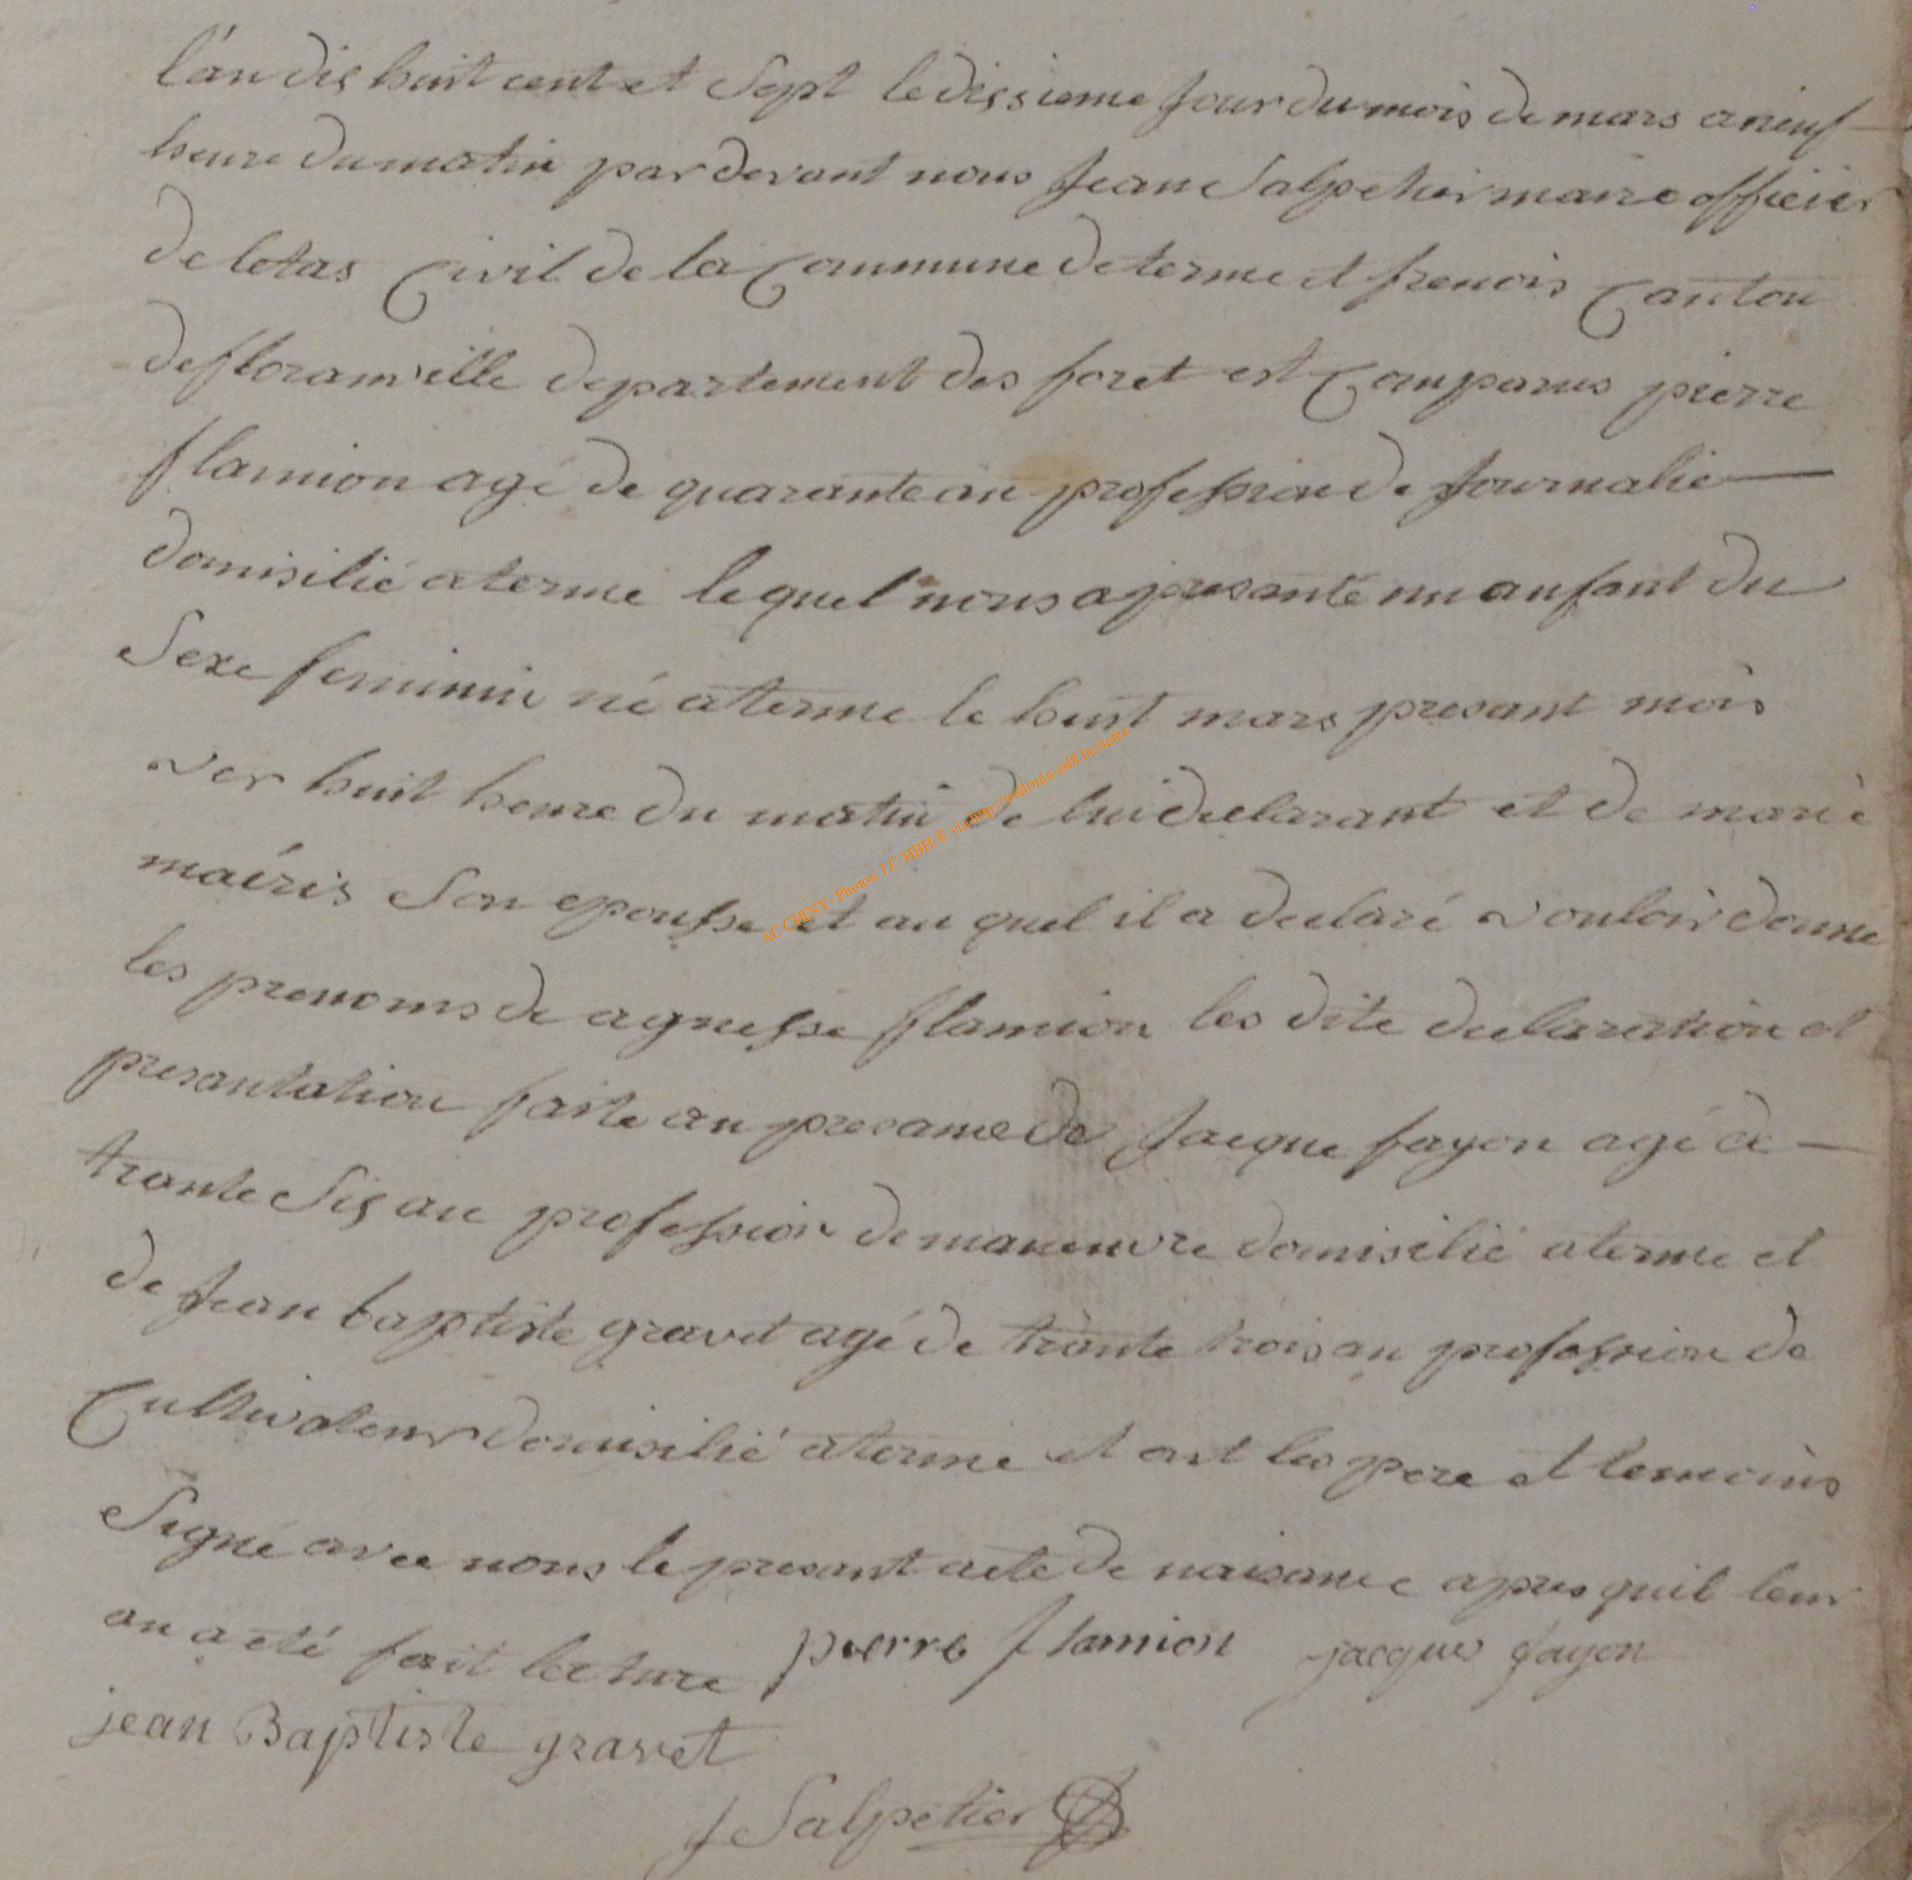 l'an dis huit cent et Sept le dissieme Jour du mois de mars a neuf
heure du matin par devant nous Jean Salpetier maire officier
de letas Civil de la Commune de terme et frenois Canton
de floranville departement des foret est Comparus pierre
flamion agé de quarante an profession de Journalie
domisilié a terme lequel nous a presanté un anfant du
Sexe feminin né a terme le huit mars presant mois
ver huit heure du matin de lui declarant et de marie
mairis Son epousse et au quel il a declaré vouloir donne
AC CHINY - Photos J.C HBH ® via http://wallonia-asbl.be/actes
les prenoms de agnesse flamion les dite declaration et
presantation faite an presance de Jacque fayon agé de
trante Sis an profession de maneuvre domisilié a terme et
de Jean baptiste gravet agé de trante trois an profession de
Cultivateur domisilié a terme et ont les pere et temoins
Signé avec nous le presant acte de naisance apres quil leur
an a eté fait lecture pierre flamion jacque fayon
jean Baptiste gravet
J Salpetier